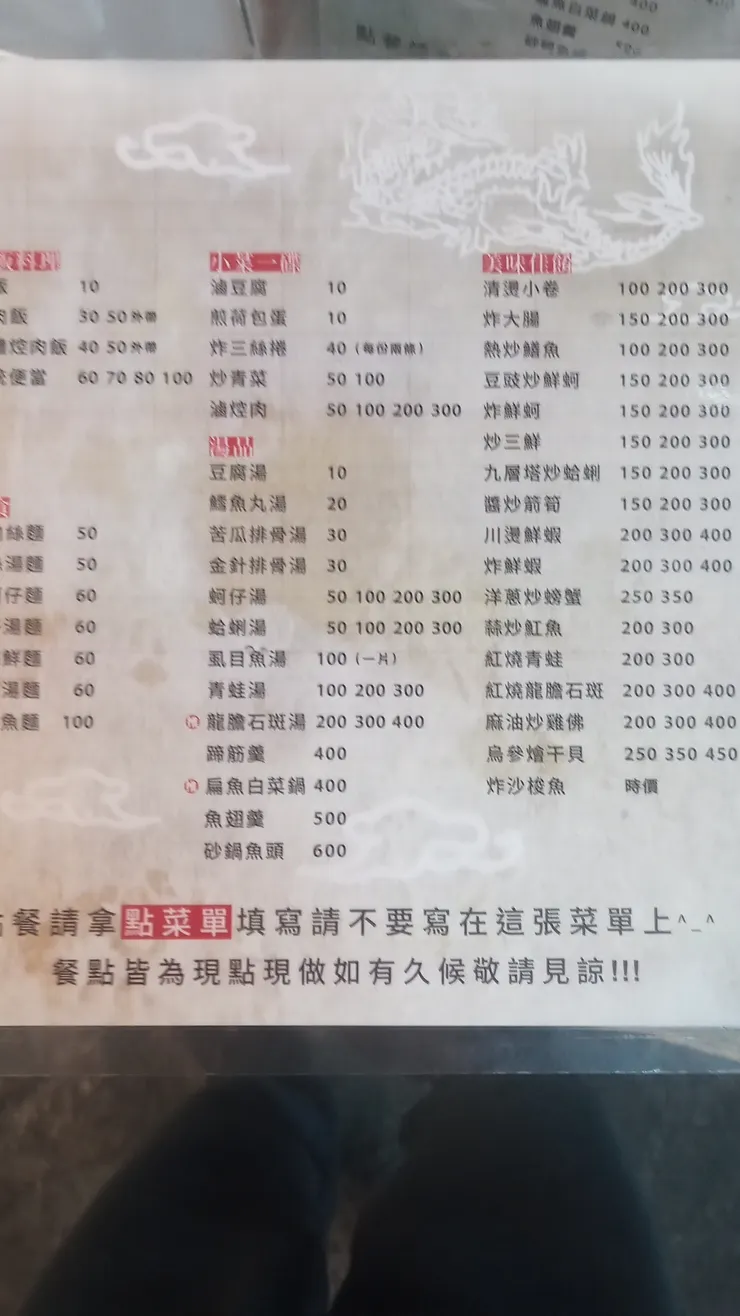 白菜鍋 400
魚翅羹
飯料理
飯 10
肉飯 30 50 外帶
焢肉飯 40 50 外帶
便當 60 70 80 100
絲麵 50
湯麵 50
仔麵 60
湯麵 60
鮮麵 60
湯麵 60
魚麵 100
小菜一碟
滷豆腐 10
煎荷包蛋 10
炸三絲捲 40 (每份兩條)
炒青菜 50 100
滷焢肉 50 100 200 300
湯品
豆腐湯 10
鱈魚丸湯 20
苦瓜排骨湯 30
金針排骨湯 30
蚵仔湯 50 100 200 300
蛤蜊湯 50 100 200 300
虱目魚湯 100 (一片)
青蛙湯 100 200 300
龍膽石斑湯 200 300 400
蹄筋羹 400
扁魚白菜鍋 400
魚翅羹 500
砂鍋魚頭 600
美味佳餚
清燙小卷 100 200 300
炸大腸 150 200 300
熱炒鱔魚 100 200 300
豆豉炒鮮蚵 150 200 300
炸鮮蚵 150 200 300
炒三鮮 150 200 300
九層塔炒蛤蜊 150 200 300
醬炒箭筍 150 200 300
川燙鮮蝦 200 300 400
炸鮮蝦 200 300 400
洋蔥炒螃蟹 250 350
蒜炒魟魚 200 300
紅燒青蛙 200 300
紅燒龍膽石斑 200 300 400
麻油炒雞佛 200 300 400
烏參燴干貝 250 350 450
炸沙梭魚 時價
點餐請拿點菜單填寫請不要寫在這張菜單上^_^
餐點皆為現點現做如有久候敬請見諒!!!